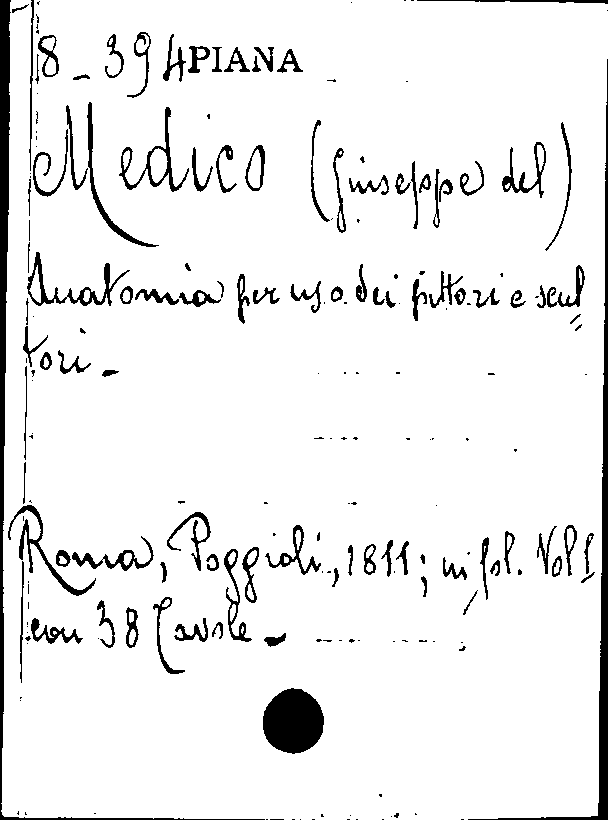 8_394 PIANA
Medico (Giuseppe del)
Anatomia per uso dei pittori e scul=
tori_
Roma, Poggioli, 1811; in fol. Vol 1
con 38 Tavole_